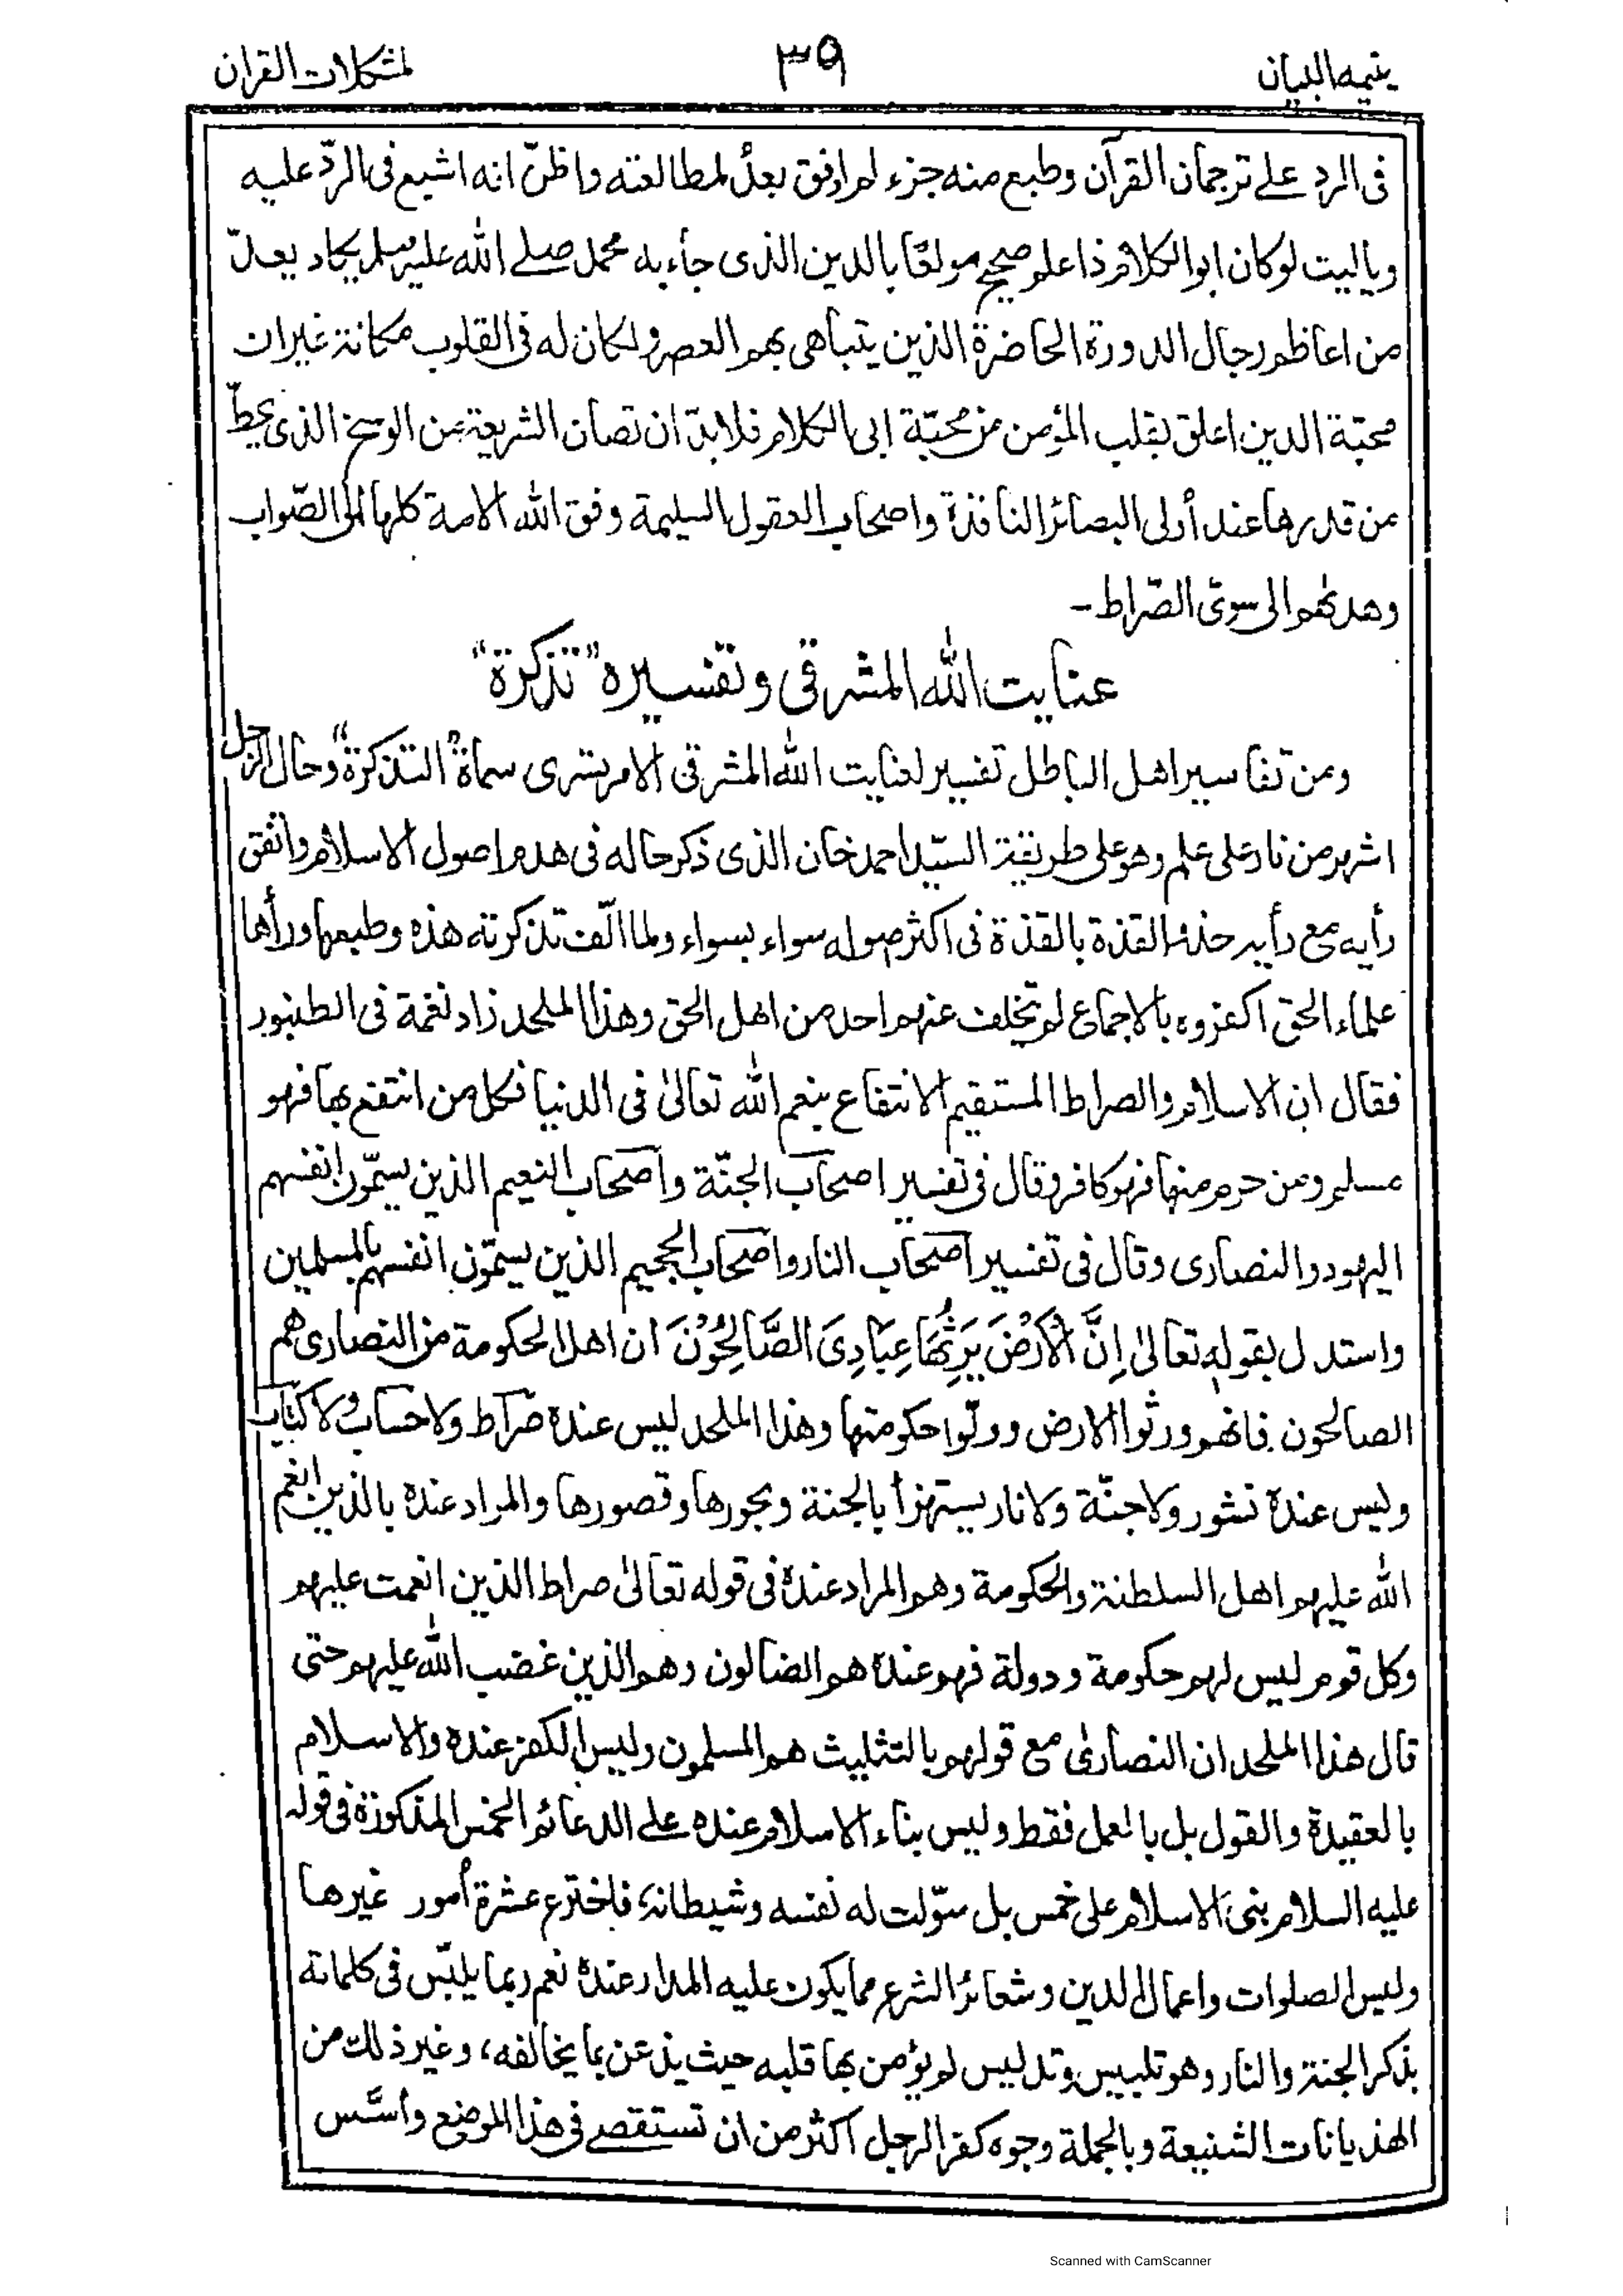 يتيمة البيان ٣٩ لمشكلات القران
فى الرد على ترجمان القرآن وطبع منه جزء لم اوفق بعدُ لمطالعته واظنّ انه اشبع فى الردّ عليه
وياليت لوكان ابوالكلام ذا علم صحيح مولعًا بالدين الذى جاء به محمد صلے الله عليه وسلم يكاد يعدّ
من اعاظم رجال الدورة الحاضرة الذين يتباهى بهم العصر ولكان له فى القلوب مكانة غيران
محبّة الدين اعلق بقلب المؤمن من محبّة ابى الكلام فلابدّ ان تصان الشريعة من الوسخ الذى يحطّ
من قدرها عند أولى البصائر النافذة واصحاب العقول السليمة وفق الله الامة كلها الى الصّواب
وهداهم الى سوىّ الصّراط ـ
عنايت الله المشرقى وتفسيره "تذكرة"
ومن تفاسير اهل الباطل تفسير لعنايت الله المشرقى الامرتسرى سماهُ "التذكرة" وحال الرجل
اشهر من نار على علم وهو على طريقة السيّد احمد خان الذى ذكر حاله فى هدم اصول الاسلام واتفق
رأيه مع رأيه حذو القذة بالقذة فى اكثر اصوله سواء بسواء ولما الّف تذكرته هذه وطبعها ورأها
علماء الحق اكفروه بالاجماع لم يتخلف عنهم احد من اهل الحق وهذا الملحد زاد نغمة فى الطنبور
فقال ان الاسلام والصراط المستقيم الانتفاع بنعم الله تعالىٰ فى الدنيا فكل من انتفع بها فهو
مسلم ومن حرم منها فهو كافر وقال فى تفسير اصحاب الجنّة واصحاب النعيم الذين يسمّون انفسهم
اليهود والنصارى وقال فى تفسير اصحاب النار واصحاب الجحيم الذين يسمّون انفسهم بالمسلمين
واستدل بقوله تعالىٰ اِنَّ الْاَرْضَ يَرِثُهَا عِبَادِىَ الصَّالِحُوْنَ ان اهل الحكومة من النصارى هم
الصالحون فانهم ورثوا الارض وولّوا حكومتها وهذا الملحد ليس عنده صراط ولا حساب ولا كتاب
وليس عندهٗ نشور ولا جنّة ولا نار يستهزأ بالجنة وبحورها وقصورها والمراد عندهٗ بالذين انعم
الله عليهم اهل السلطنة والحكومة وهو المراد عندهٗ فى قوله تعالىٰ صراط الذين انعمت عليهم
وكل قوم ليس لهم حكومة ودولة فهو عندهٗ هم الضالون وهم الذين غضب الله عليهم حتى
قال هذا الملحد ان النصارىٰ مع قولهم بالتثليث هم المسلمون وليس الكفر عنده والاسلام
بالعقيدة والقول بل بالعمل فقط وليس بناء الاسلام عنده علے الدعائم الخمس المذكورة فى قوله
عليه السلام بنى الاسلام على خمس بل سوّلت له نفسه وشيطانه، فاخترع عشرة أمور غيرها
وليس الصلوات واعمال الدين وشعائر الشرع مما يكون عليه المدار عندهٗ نعم ربما يلبّس فى كلماته
بذكر الجنة والنار وهو تلبيس وتدليس لم يؤمن بها قلبه حيث يذعن بما يخالفه، وغير ذلك من
الهذيانات الشنيعة وبالجملة وجوه كفر الرجل اكثر من ان تستقصے فى هذا الموضع وأسّس
Scanned with CamScanner